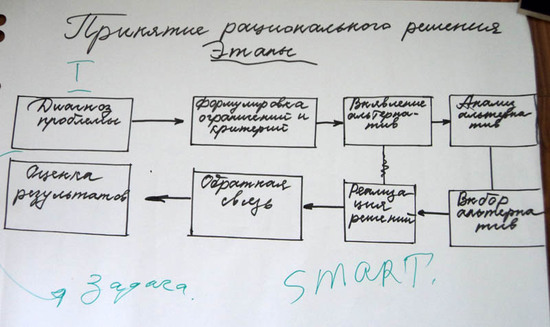 Принятие рационального решения
Этапы
I
Диагноз
проблемы
Формулировка
ограничений и
критерий
Выявление
альтерна-
тив
Анализ
альтерна
тив
Оценка
результатов
Обратная
связь
Реализа-
ция
решений
Выбор
альтерна
тив
Задача.
SMART.